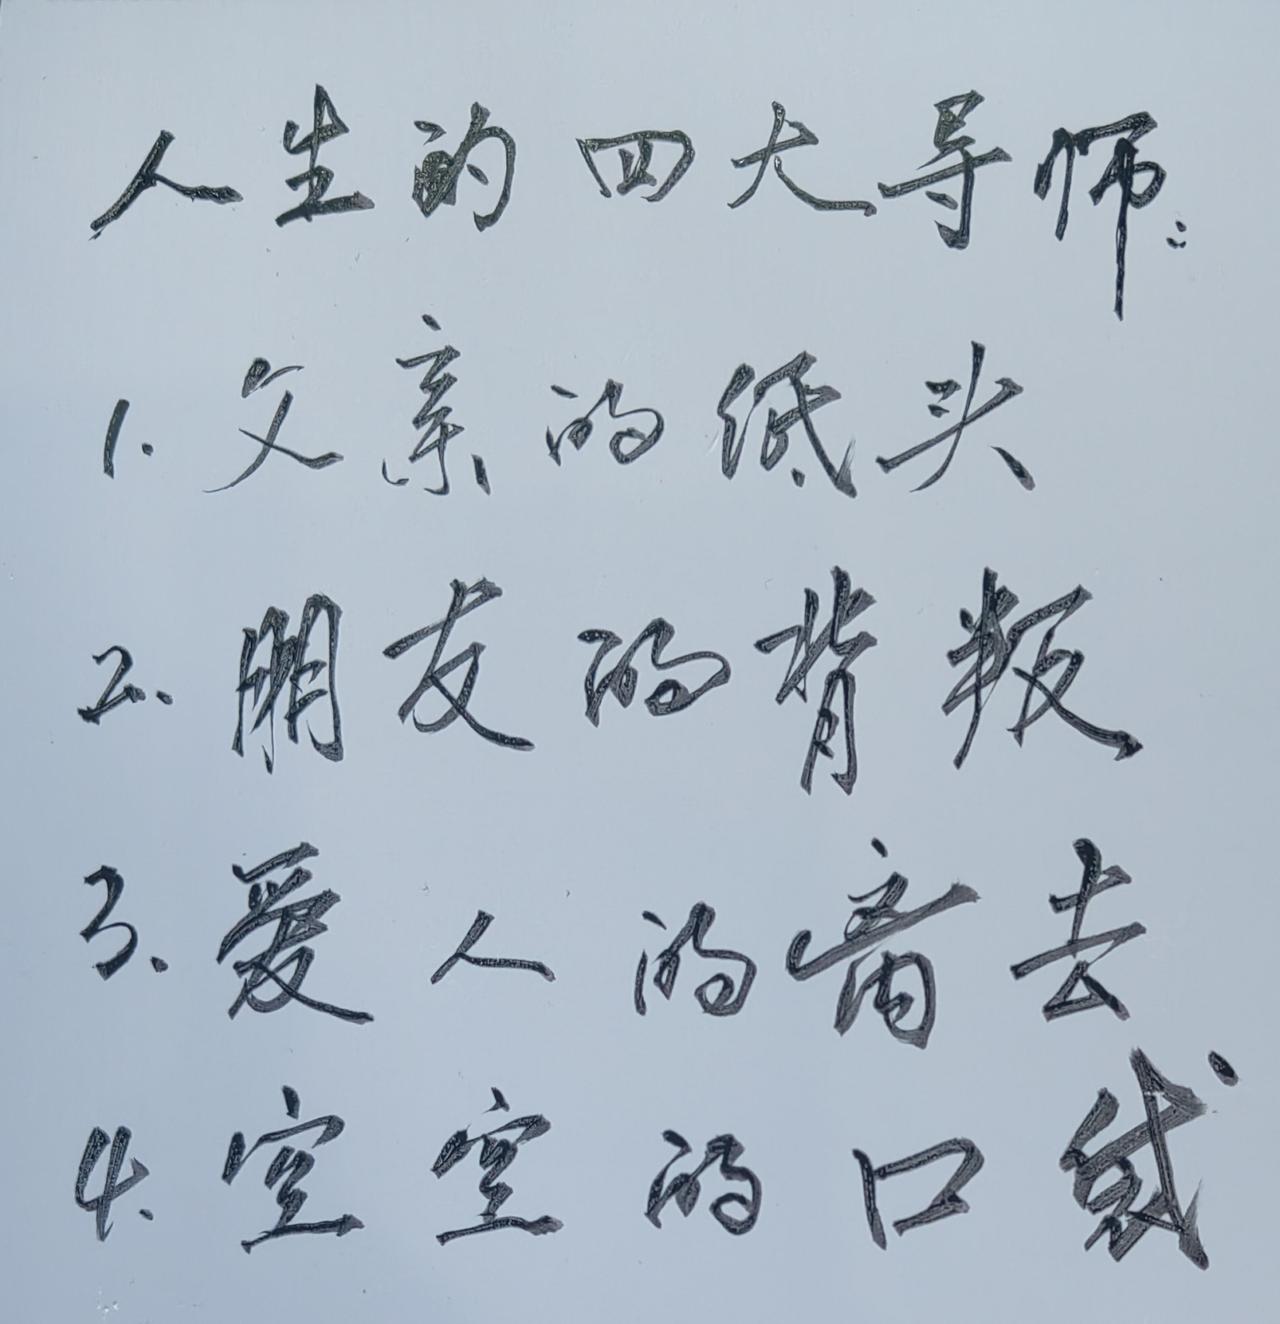 人生的四大导师:
1. 父亲的低头
2. 朋友的背叛
3. 爱人的离去
4. 空空的口袋